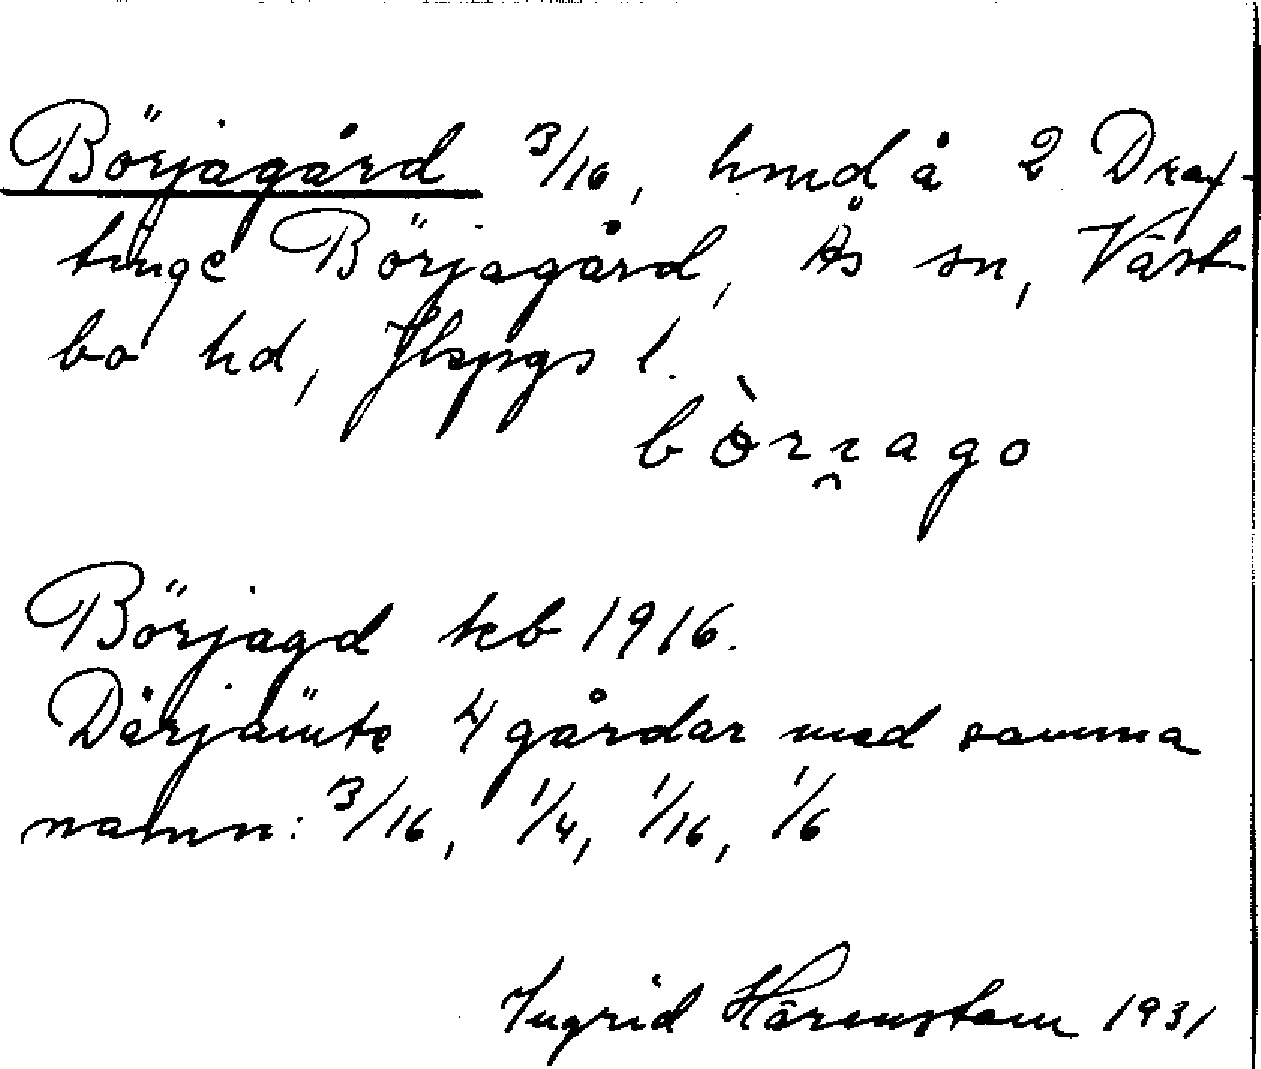 Börjagård 3/16, hmd å 2 Draf-
tinge Börjagård, Ås sn, Väst
bo hd, Jkpgs l.
bòrr̯ago
Börjagd keb 1916.
Därjämte 4 gårdar med samma
namn: 3/16, 1/4, 1/16, 1/6
Ingrid Härenstam 1931